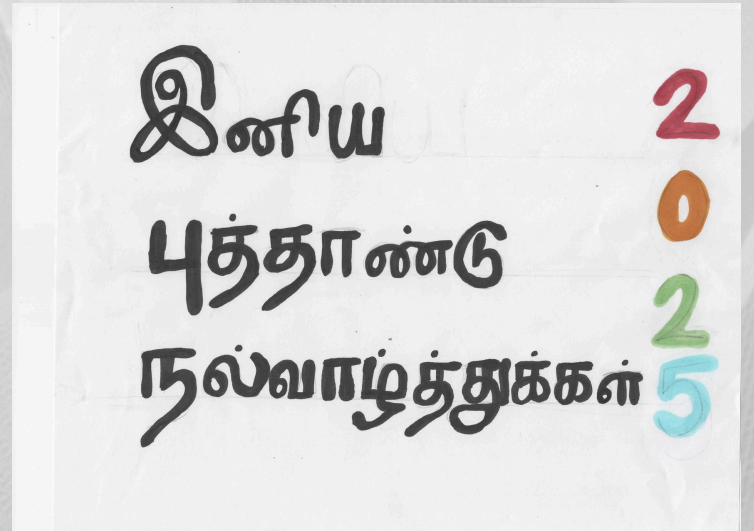 இனிய
புத்தாண்டு
நல்வாழ்த்துக்கள்
2
0
2
5